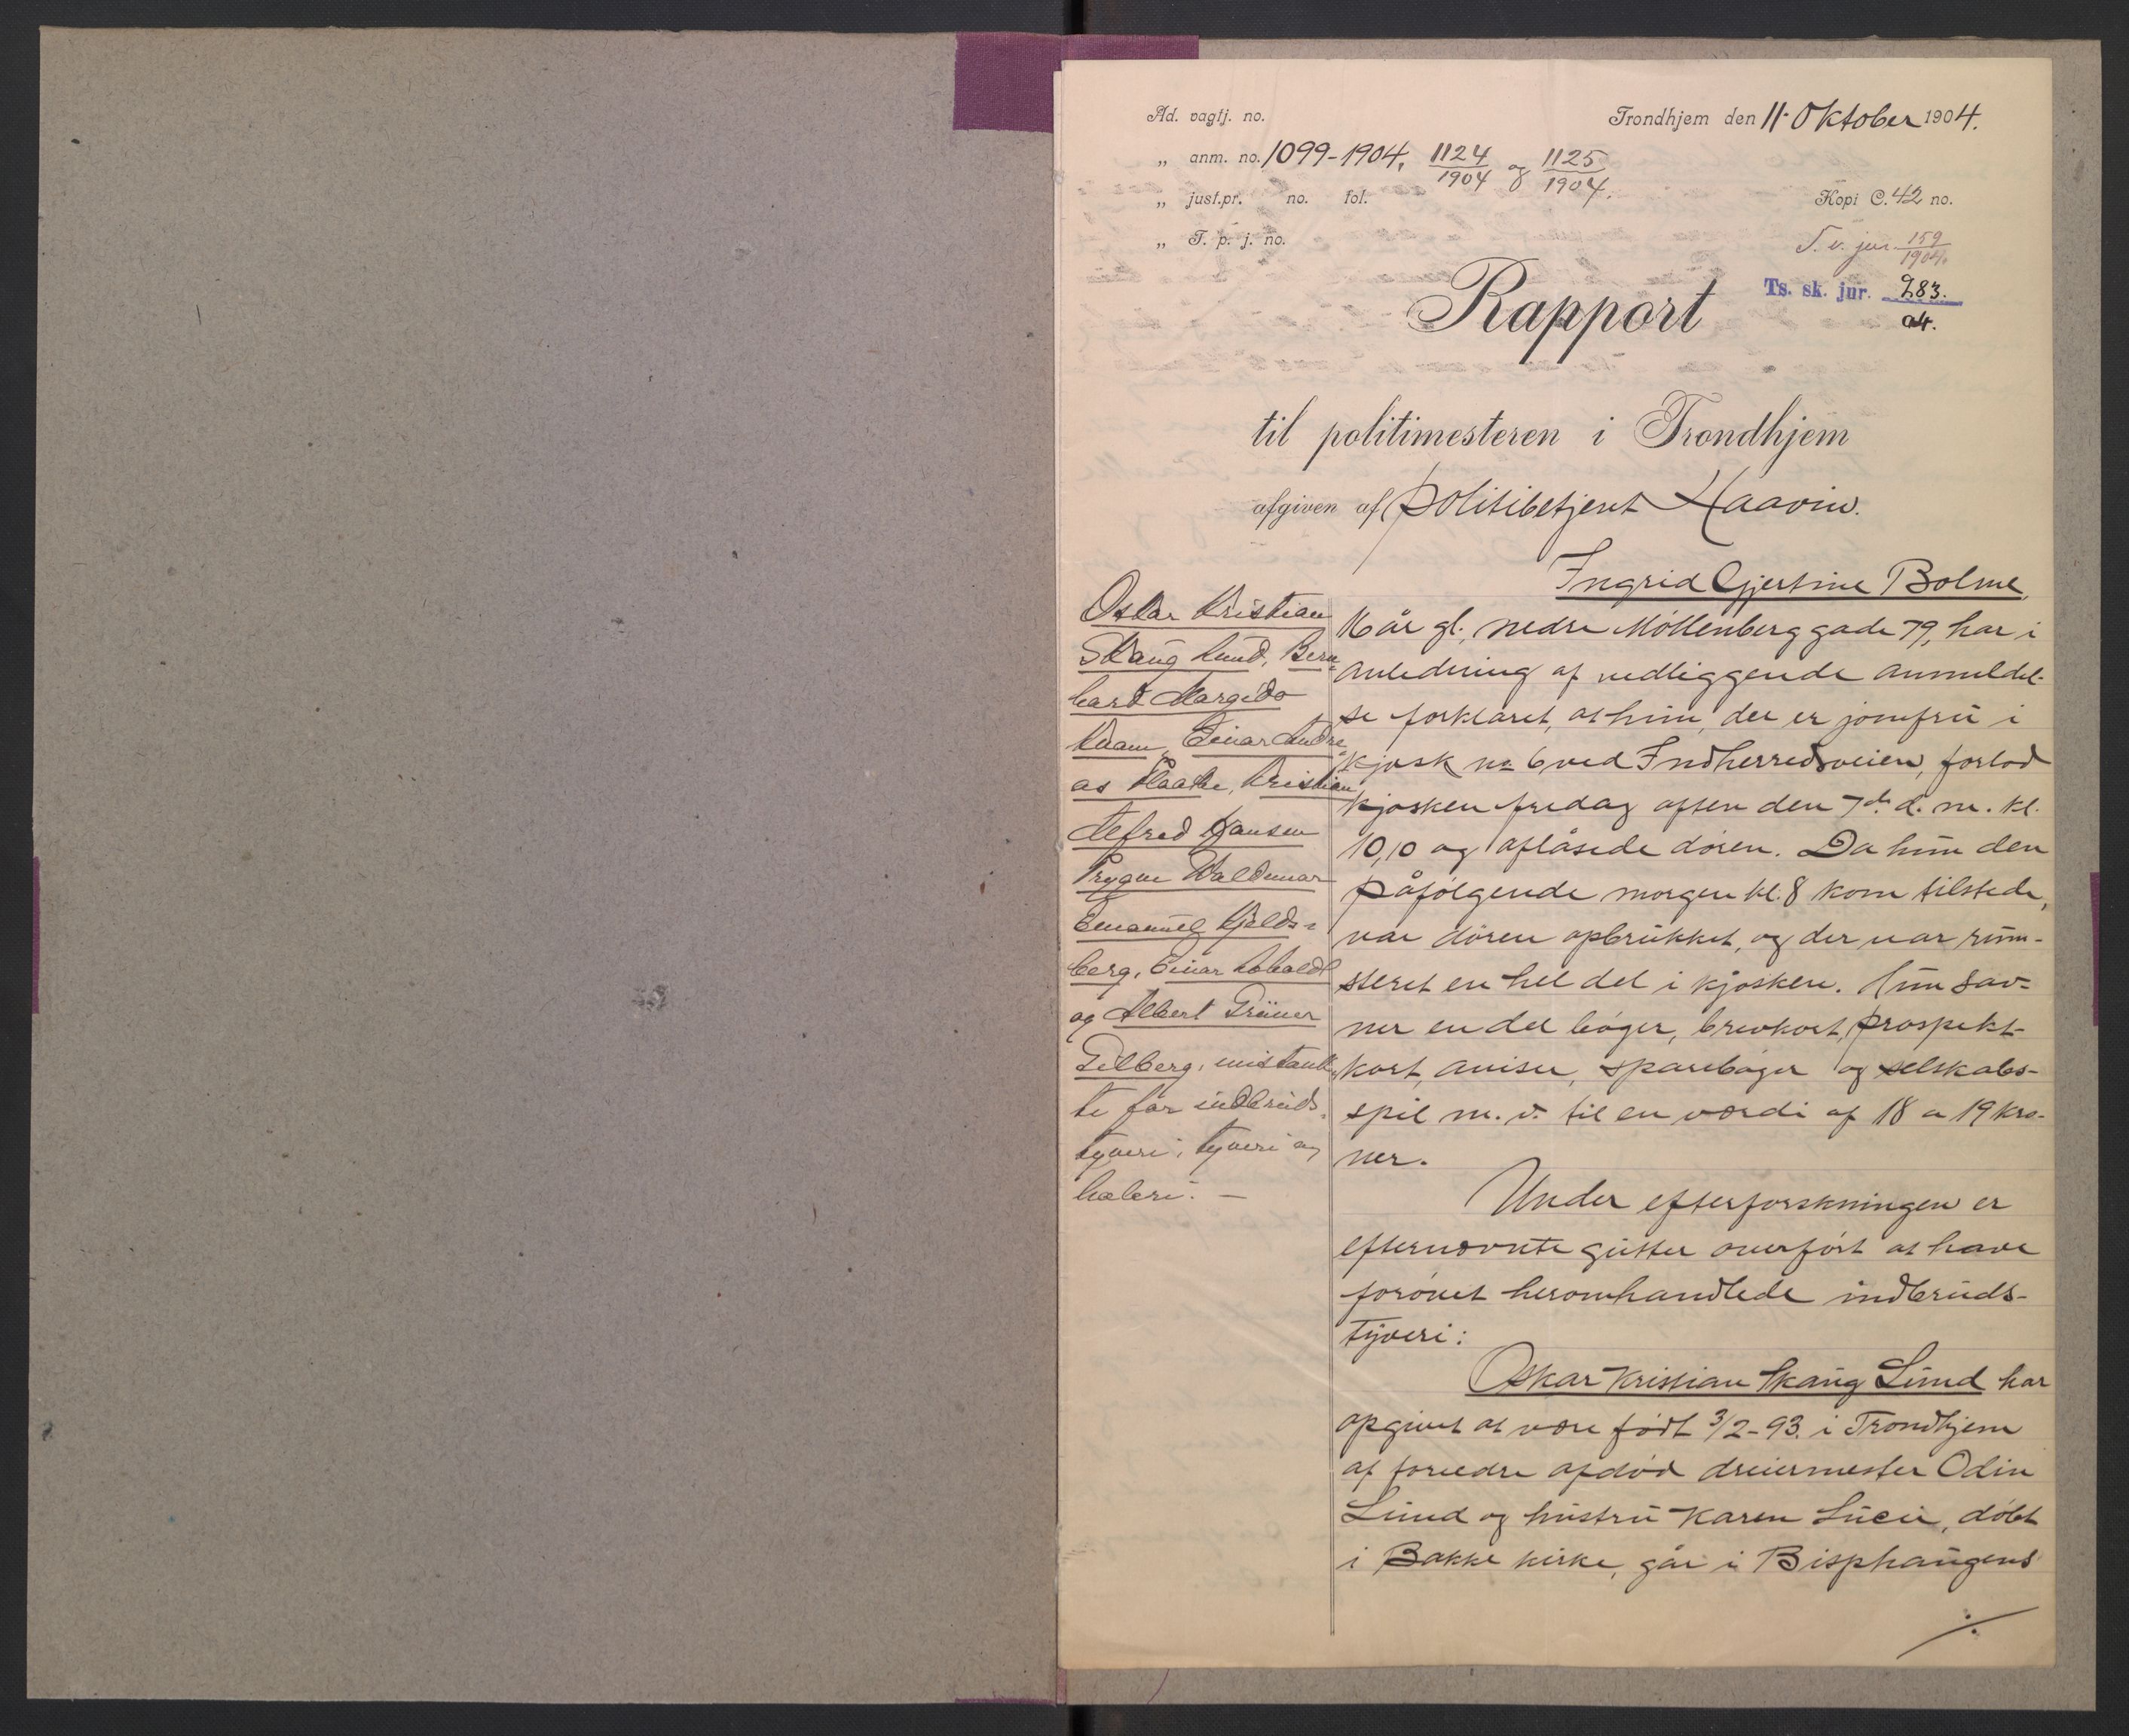 Ad. vagtj. no.
Trondhjem den 11. Oktober 1904.
„ anm. no. 1099-1904, 1124/1904 og 1125/1904.
„ just.pr. no. fol.
Kopi C. 42 no.
„ T. p. j. no.
T. v. jur. 159/1904.
Ts. sk. jnr. 283./04.
Rapport
til politimesteren i Trondhjem
afgiven af politibetjent Haavin.
Oskar Kristian
Skaug Lund, Bern-
hard Margido
Kvam, Einar Andre-
as Flaathe, Kristian
Alfred Hansen
Trygve Waldemar
Emanuel Kjelds-
berg, Einar
og Albert Grüner
Gilberg, mistænk-
te for indbruds-
tyveri, tyveri og
hæleri. —
Ingrid Gjertine Bolme,
16 år gl., nedre Möllenberg gade 79, har i
anledning af vedliggende anmeldel-
se forklaret, at hun, der er jomfru i
kjosk no 6 ved Indherredsveien, forlod
kjosken fredag aften den 7de d. m. kl.
10,10 og aflåsede dören. Da hun den
påfölgende morgen kl. 8 kom tilstede,
var dören opbrukket, og der var rum-
steret en hel del i kjosken. Hun sav-
ner en del böger, brevkort, prospekt-
kort, aviser, sparebøger og selskabs-
spil m. v. til en værdi af 18 a 19 kro-
ner.
Under efterforskningen er
efternævnte gutter overfört at have
forövet heromhandlede indbruds-
tyveri:
Oskar Kristian Skaug Lund har
opgivet at være födt 3/2-93. i Trondhjem
af forældre afdöd dreiermester Odin
Lund og hustru Karen Lucie, döbt
i Bakke kirke, går i Bisphaugens
./.